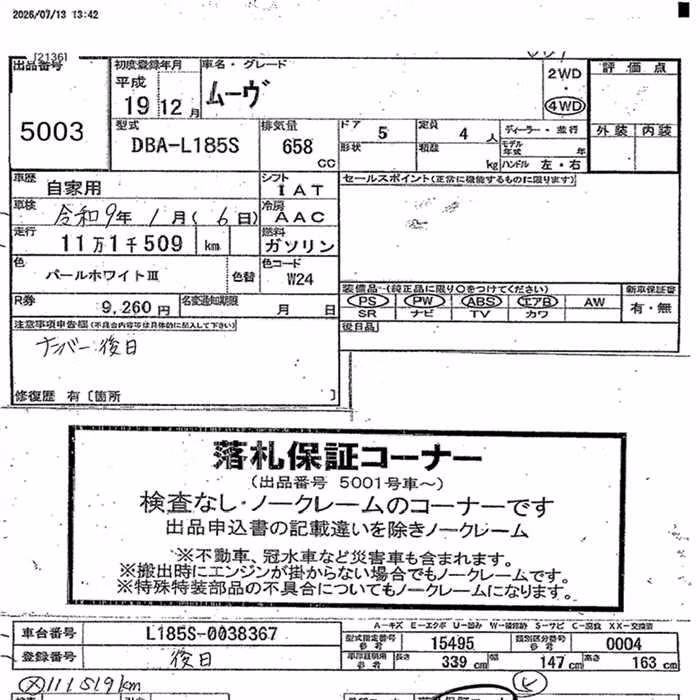 2026/07/13 13:42
[2136]
出品番号
5003
初度登録年月
平成
19 12 月
車名・グレード
ムーヴ
2WD
・
4WD
評価点
外装 内装
型式
DBA-L185S
排気量
658
CC
ドア
5
定員
4 人
形状
積載
kg
ディーラー・並行
モデル
年式
年
ハンドル 左・右
車歴
自家用
シフト
IAT
セールスポイント(正常に機能するものに限ります)
車検
令和9年 1月(6日)
冷房
AAC
走行
11万1千509 km
燃料
ガソリン
色
パールホワイトⅢ
色替
色コード
W24
装備品 (純正品に限り○をつけてください)
PS PW ABS エアB AW
SR ナビ TV カワ
新車保証書
有・無
R券
9,260 円
名変通知期限
月 日
後日品
注意事項申告欄(不具合内容等は具体的に記入して下さい)
ナンバー後日
修復歴 有〔箇所 〕
落札保証コーナー
(出品番号 5001号車～)
検査なし・ノークレームのコーナーです
出品申込書の記載違いを除きノークレーム
※不動車、冠水車など災害車も含まれます。
※搬出時にエンジンが掛からない場合でもノークレームです。
※特殊特装部品の不具合についてもノークレームになります。
車台番号
L185S-0038367
A-キズ E-エクボ U-凹み W-補修跡 S-サビ C-腐食 XX-交換済
型式指定番号
参考
15495
類別区分番号
参考
0004
登録番号
後日
車庫証明用
参考
長さ
339 cm
幅
147 cm
高さ
163 cm
111519km